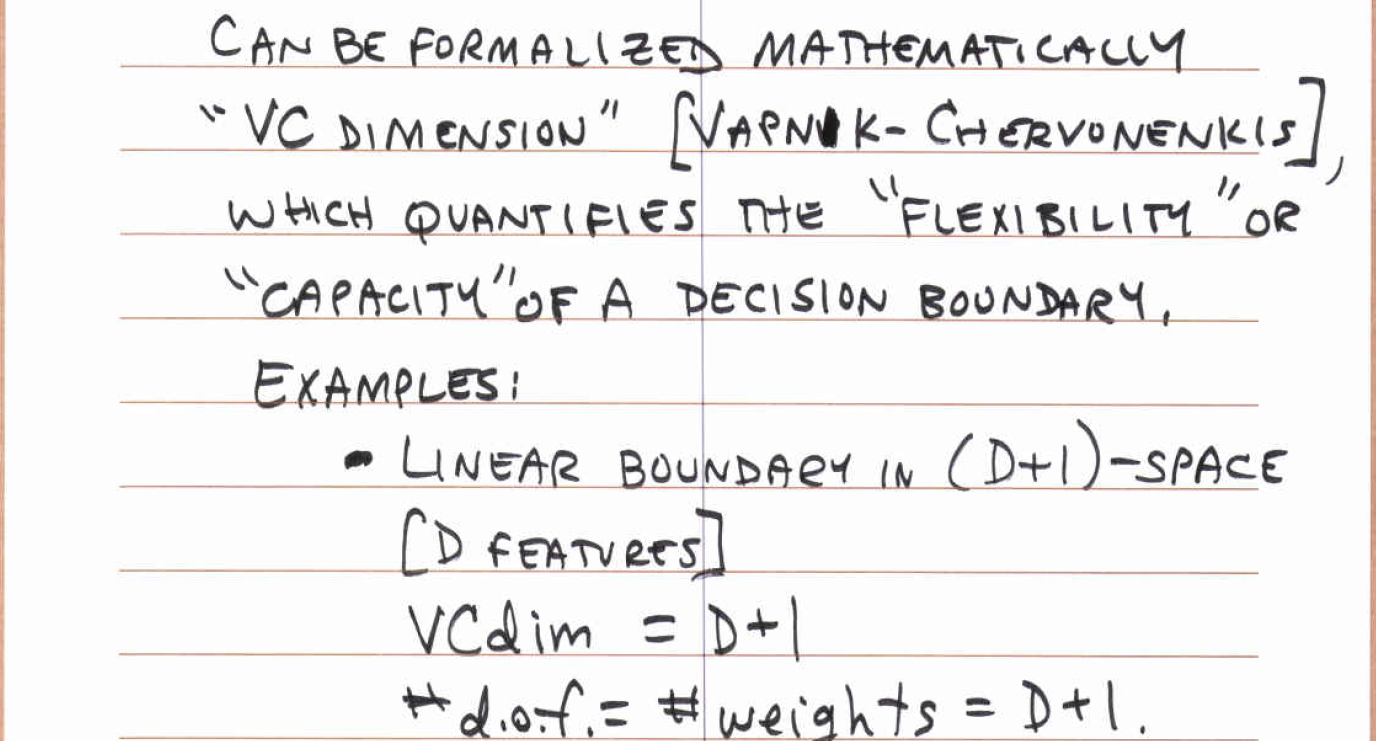 CAN BE FORMALIZED MATHEMATICALLY
"VC DIMENSION" [VAPNIK-CHERVONENKIS],
WHICH QUANTIFIES THE "FLEXIBILITY" OR
"CAPACITY" OF A DECISION BOUNDARY.
EXAMPLES:
- LINEAR BOUNDARY IN (D+1)-SPACE
[D FEATURES]
VCdim = D+1
# d.o.f. = # weights = D+1.